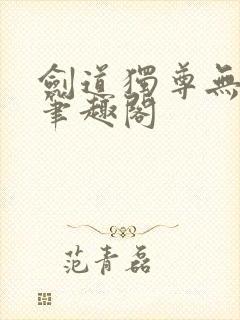 劍道獨尊無
筆趣閣
范青磊